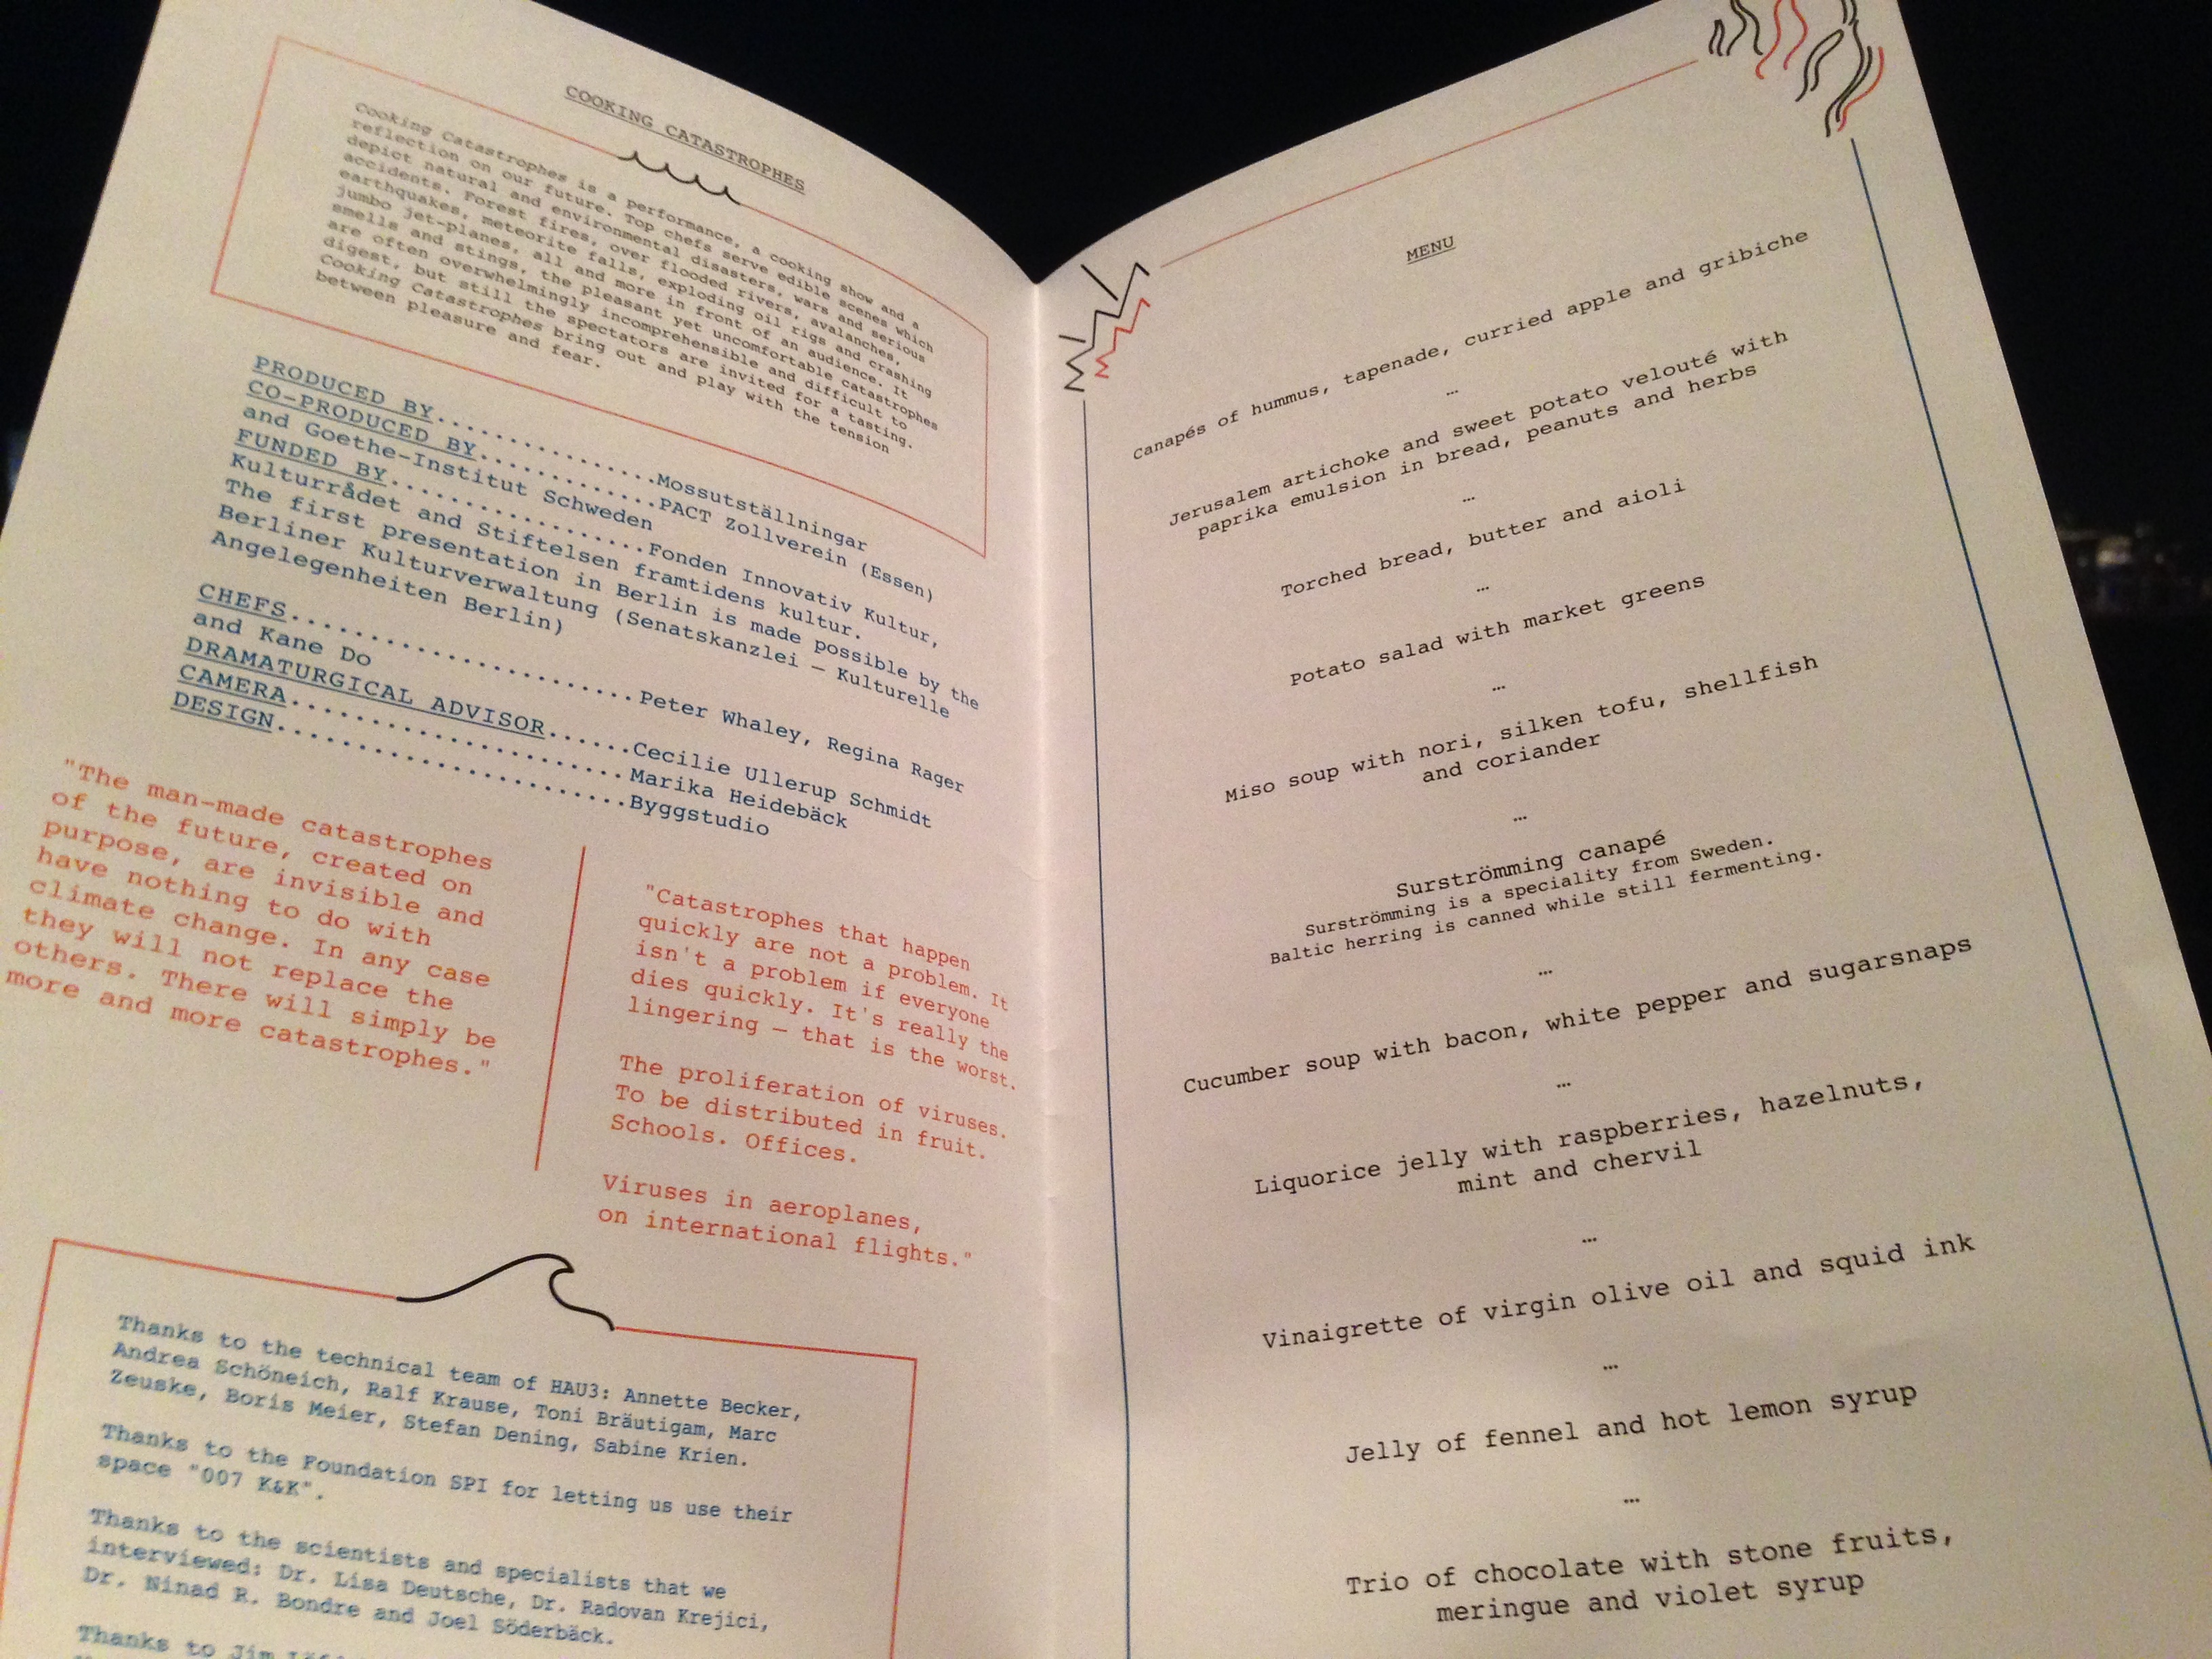 COOKING CATASTROPHES
Cooking Catastrophes is a performance, a cooking show and a
reflection on our future. Top chefs serve edible scenes which
depict natural and environmental disasters, wars and serious
accidents. Forest fires, over flooded rivers, avalanches,
earthquakes, meteorite falls, exploding oil rigs and crashing
jumbo jet-planes, all and more in front of an audience. It
smells and stings, the pleasant yet uncomfortable catastrophes
are often overwhelmingly incomprehensible and difficult to
digest, but still the spectators are invited for a tasting.
Cooking Catastrophes bring out and play with the tension
between pleasure and fear.
PRODUCED BY............................Mossutställningar
CO-PRODUCED BY.................PACT Zollverein (Essen)
and Goethe-Institut Schweden
FUNDED BY....................Fonden Innovativ Kultur,
Kulturrådet and Stiftelsen framtidens kultur.
The first presentation in Berlin is made possible by the
Berliner Kulturverwaltung (Senatskanzlei – Kulturelle
Angelegenheiten Berlin)
CHEFS..........................Peter Whaley, Regina Rager
and Kane Do
DRAMATURGICAL ADVISOR......Cecilie Ullerup Schmidt
CAMERA..........................Marika Heidebäck
DESIGN...........................Byggstudio
"The man-made catastrophes
of the future, created on
purpose, are invisible and
have nothing to do with
climate change. In any case
they will not replace the
others. There will simply be
more and more catastrophes."
"Catastrophes that happen
quickly are not a problem. It
isn't a problem if everyone
dies quickly. It's really the
lingering – that is the worst.
The proliferation of viruses.
To be distributed in fruit.
Schools. Offices.
Viruses in aeroplanes,
on international flights."
Thanks to the technical team of HAU3: Annette Becker,
Andrea Schöneich, Ralf Krause, Toni Bräutigam, Marc
Zeuske, Boris Meier, Stefan Dening, Sabine Krien.
Thanks to the Foundation SPI for letting us use their
space "007 K&K".
Thanks to the scientists and specialists that we
interviewed: Dr. Lisa Deutsche, Dr. Radovan Krejici,
Dr. Ninad R. Bondre and Joel Söderbäck.
Thanks to Jim
MENU
Canapés of hummus, tapenade, curried apple and gribiche
…
Jerusalem artichoke and sweet potato velouté with
paprika emulsion in bread, peanuts and herbs
…
Torched bread, butter and aioli
…
Potato salad with market greens
…
Miso soup with nori, silken tofu, shellfish
and coriander
…
Surströmming canapé
Surströmming is a speciality from Sweden.
Baltic herring is canned while still fermenting.
…
Cucumber soup with bacon, white pepper and sugarsnaps
…
Liquorice jelly with raspberries, hazelnuts,
mint and chervil
…
Vinaigrette of virgin olive oil and squid ink
…
Jelly of fennel and hot lemon syrup
…
Trio of chocolate with stone fruits,
meringue and violet syrup